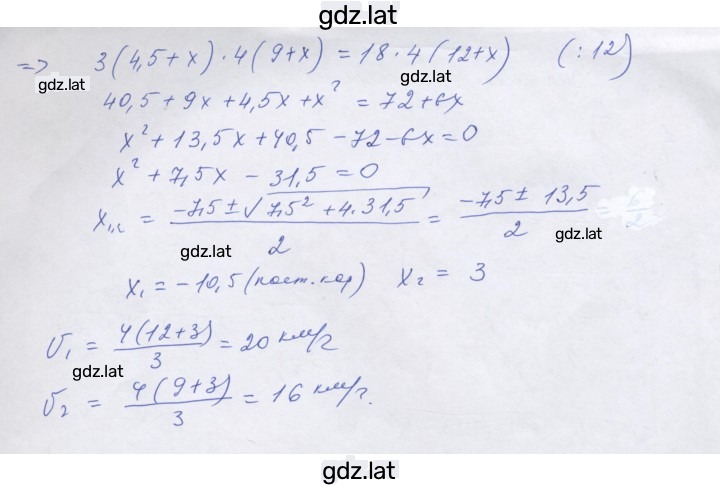 gdz.lat
=> 3(4,5+x)·4(9+x)=18·4(12+x) (:12)
gdz.lat gdz.lat
40,5+9x+4,5x+x² = 72+6x
x²+13,5x+40,5-72-6x=0
x²+7,5x-31,5=0
x₁,₂ = (-7,5±√(7,5²+4·31,5))/2 = (-7,5±13,5)/2
gdz.lat gdz.lat
x₁=-10,5 (пост. кор) x₂ = 3
υ₁ = 4(12+3)/3 = 20 км/ч
gdz.lat
υ₂ = 4(9+3)/3 = 16 км/ч.
gdz.lat